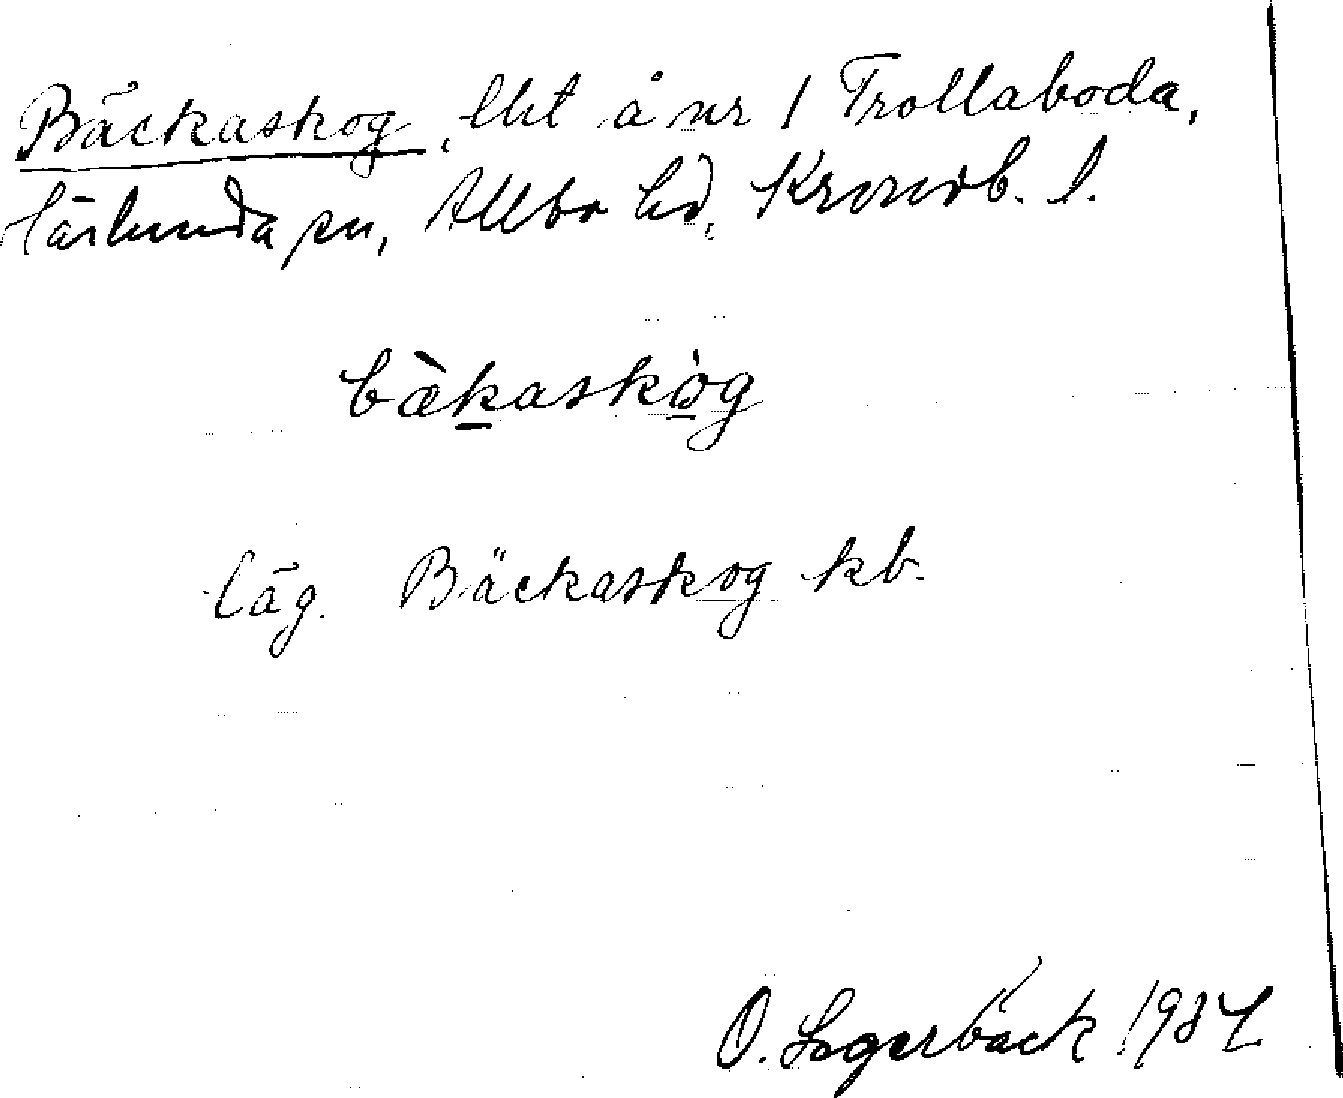 Bäckaskog, lht å nr 1 Trollaboda,
Härlunda sn, Allbo hd, Kronob. l.
bàkaskòg
läg. Bäckaskog kb.
O. Lagerbäck 1937